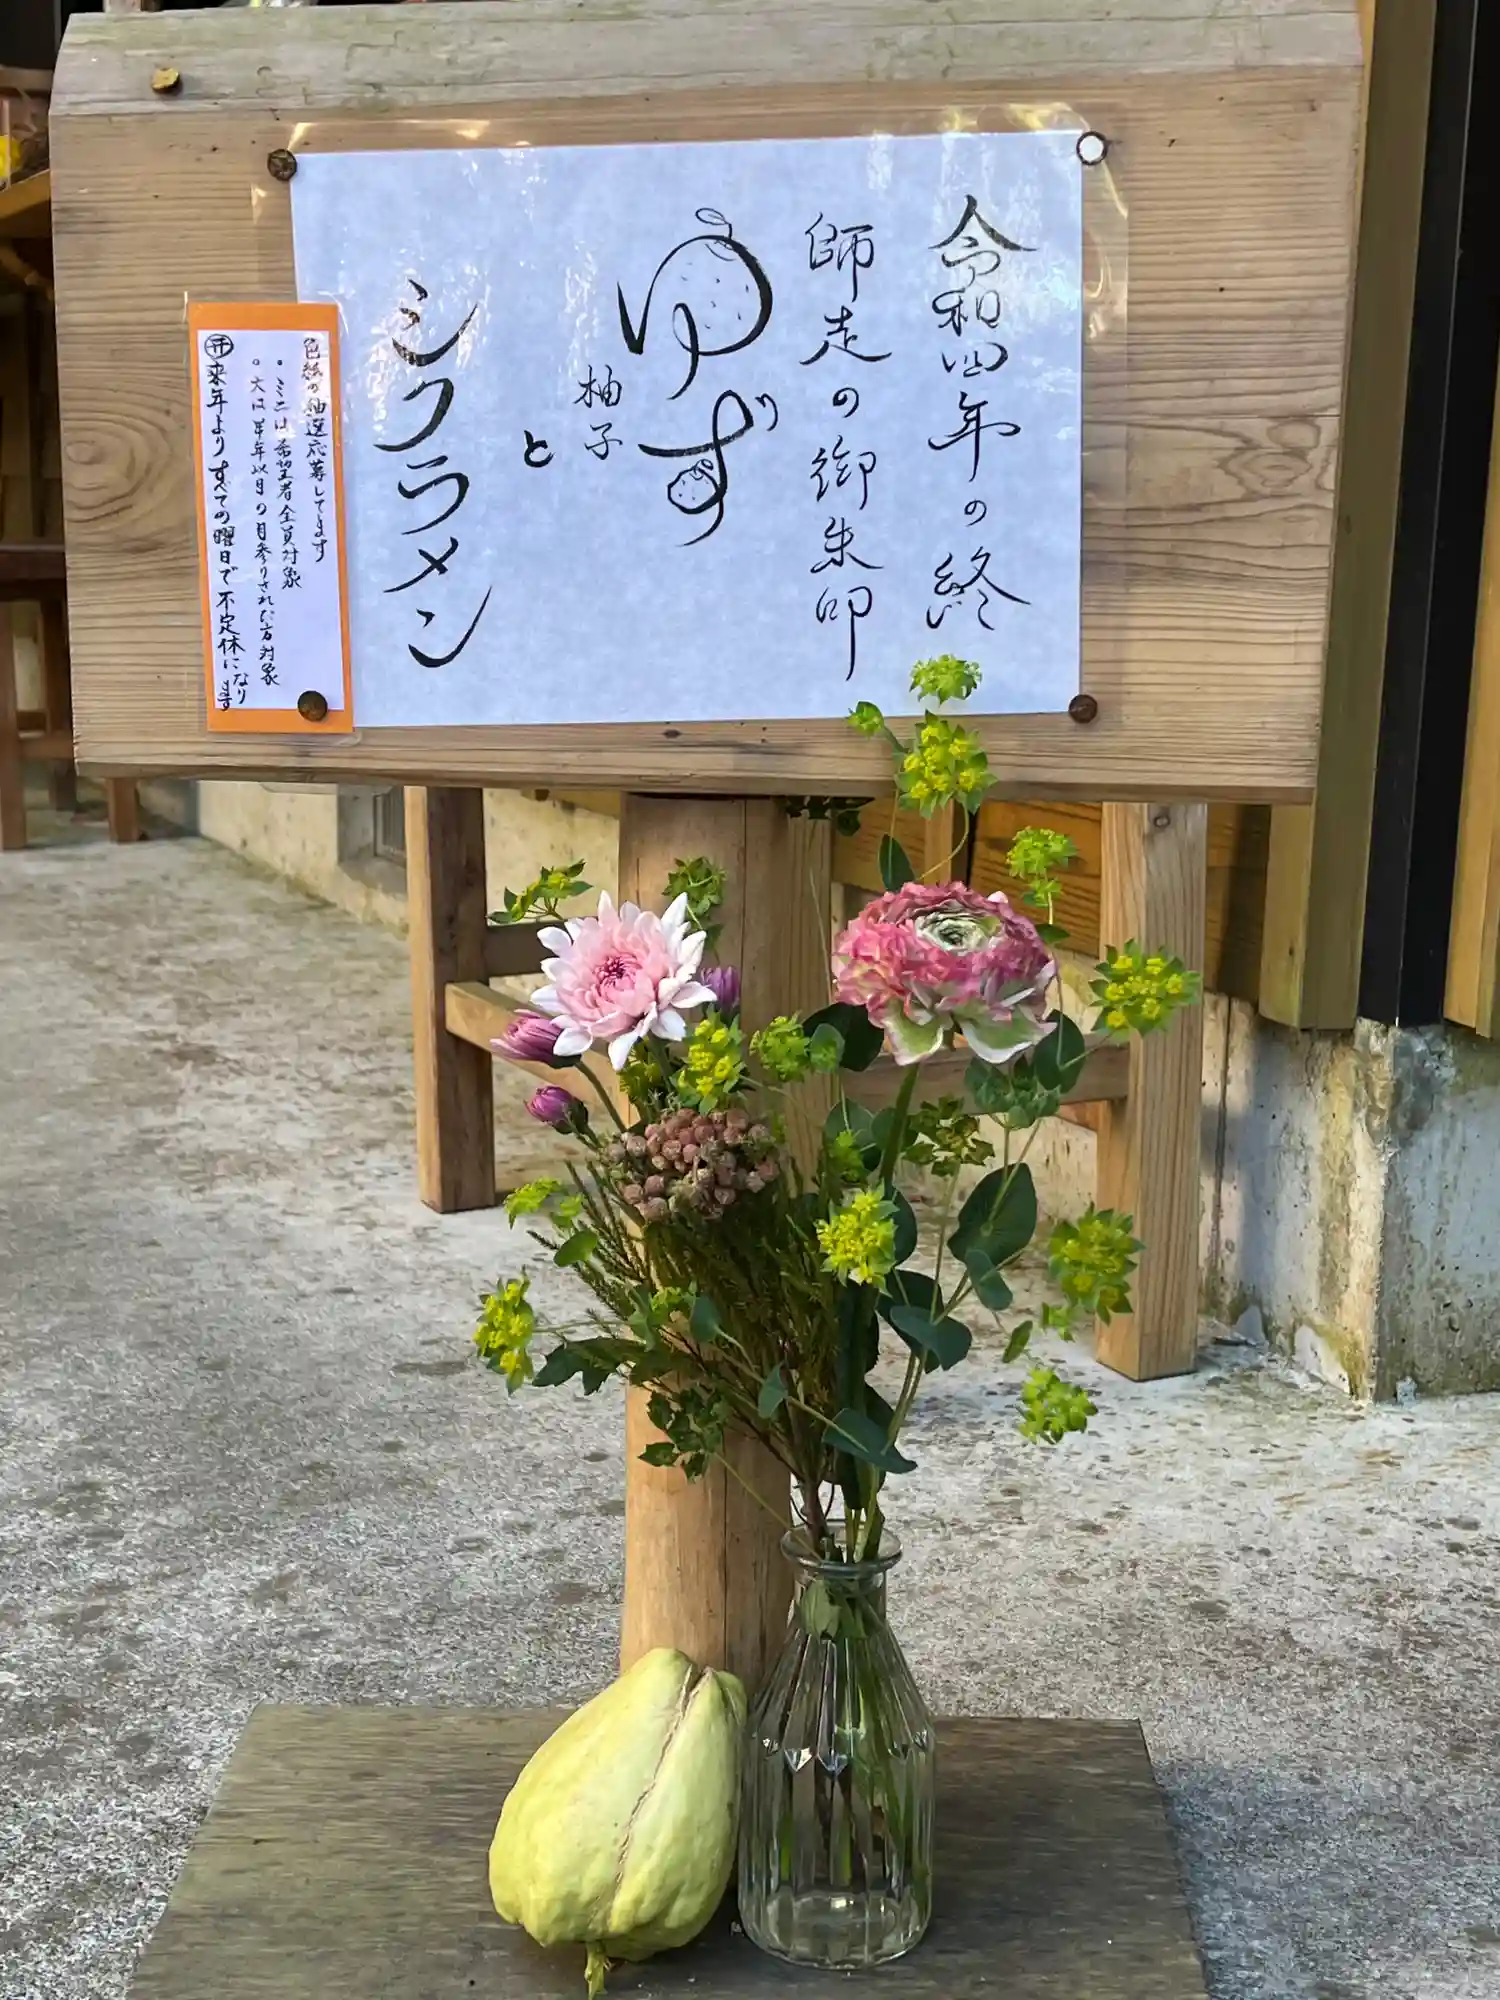 令和四年の終
師走の御朱印
ゆず
柚子
と
シクラメン
色紙の抽選応募してます
・ミニは希望者全員対象
・大は半年以内の月参りされた方対象
㋭来年よりすべての曜日で不定休になります